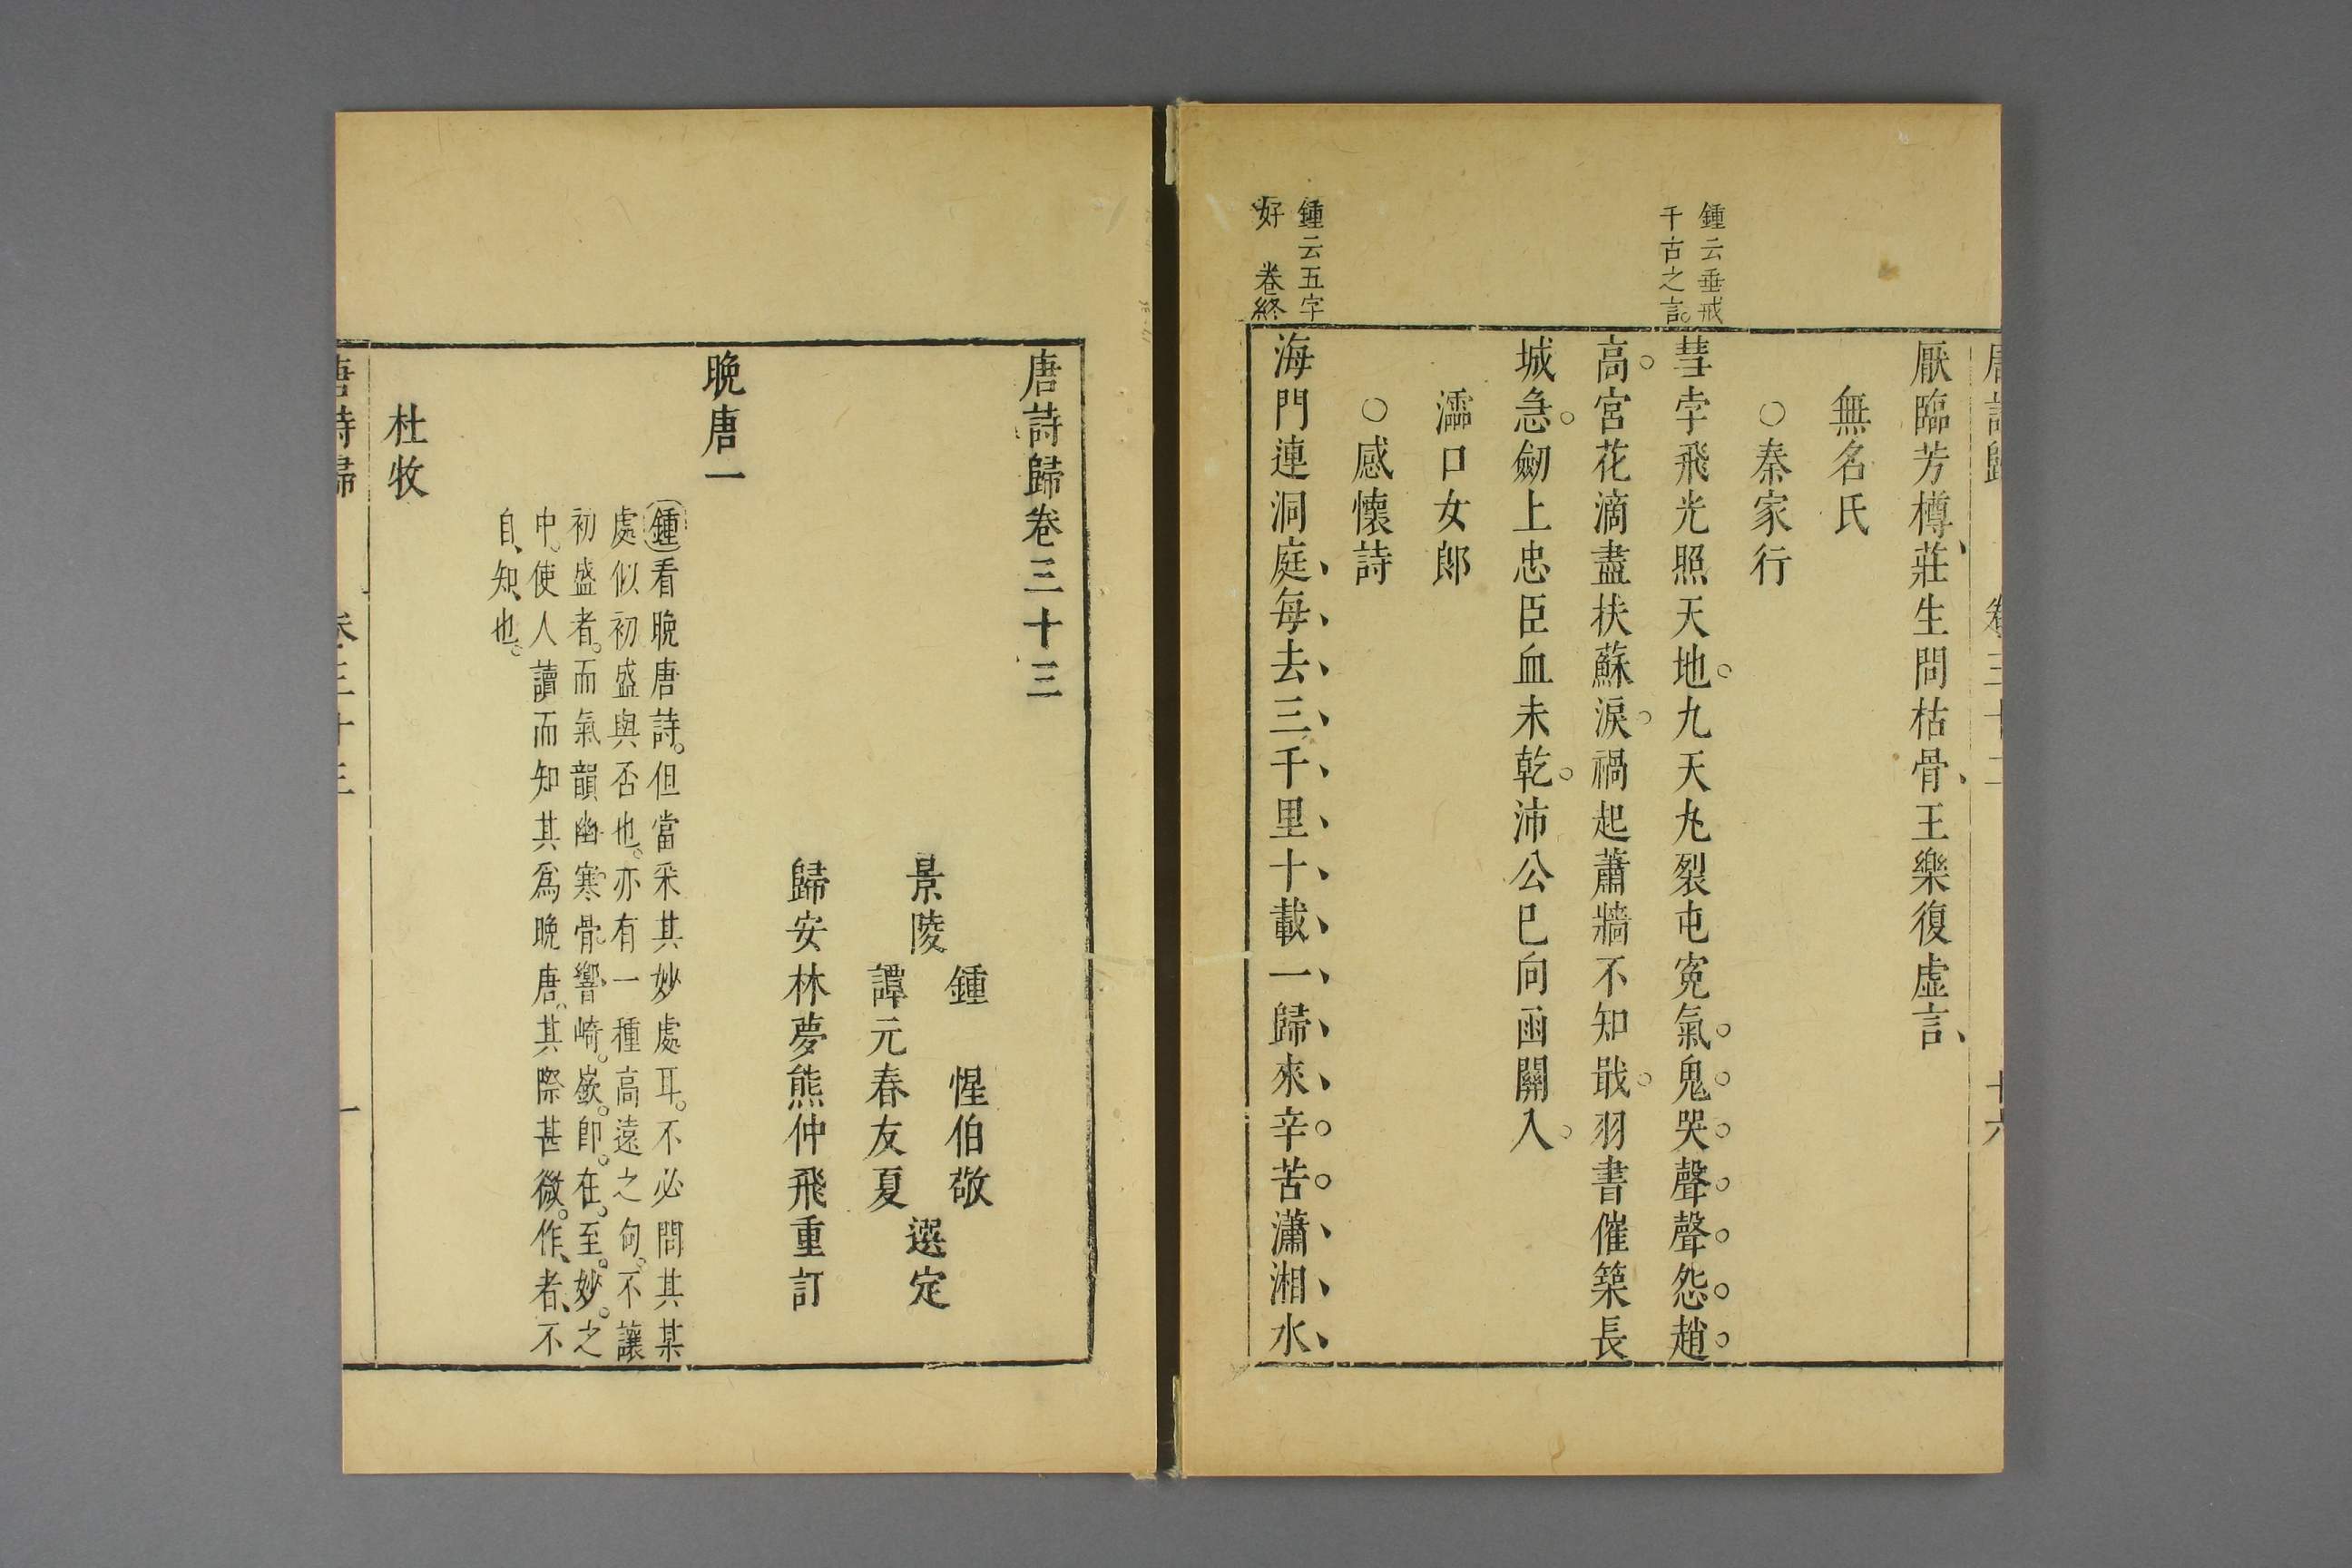 唐詩歸 卷三十二 十六
厭臨芳樽、莊生問枯骨、王樂復虛言、
無名氏
○秦家行
鍾云垂戒
千古之言。
彗孛飛光照天地。九天瓦裂屯寃氣。鬼哭聲聲怨趙
高。宮花滴盡扶蘇淚。禍起蕭牆不知戢。羽書催築長
城急。劒上忠臣血未乾。沛公已向函關入。
灞口女郎
○感懷詩
鍾云五字
好 卷終
海門連洞庭每去三千里十載一歸來辛苦瀟湘水
唐詩歸卷三十三
景陵
鍾 惺伯敬
譚元春友夏
選定
歸安林夢熊仲飛重訂
晚唐一
鍾看晚唐詩。但當采其妙處耳。不必問其某
處似初盛與否也。亦有一種高遠之句。不讓
初盛者。而氣韻幽寒骨響崎嶔。即在至妙之
中。使人讀而知其爲晚唐。其際甚微。作者、不
自、知、也。
杜牧
唐詩歸 卷三十三 一